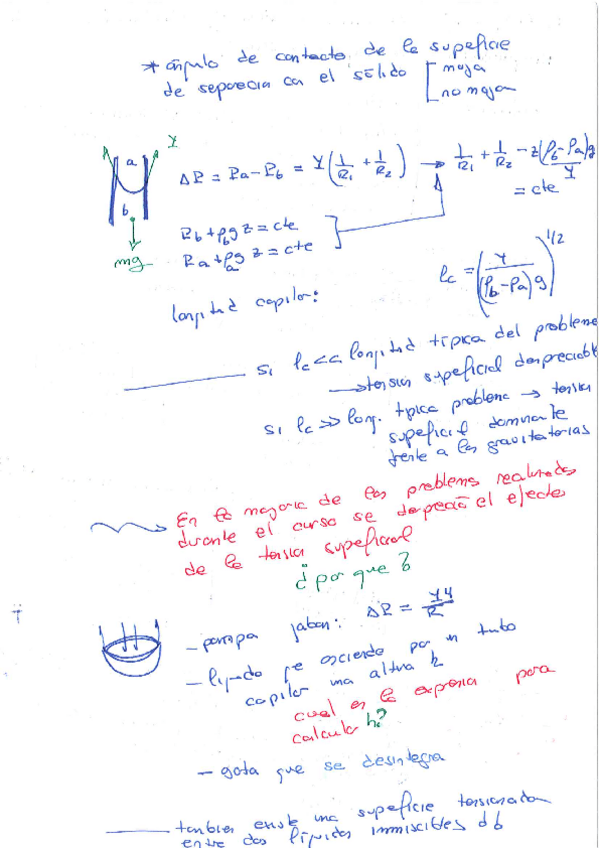 * ángulo de contacto de la superficie
de separación con el sólido [ moja
no moja
γ
a
b
mg
ΔP = Pa - Pb = γ(1/R1 + 1/R2) → 1/R1 + 1/R2 - z(ρb - ρa)g/γ
= cte
Pb + ρb g z = cte
Pa + ρa g z = cte
lc = (γ/((ρb - ρa) g))^1/2
longitud capilar:
si lc << longitud típica del problema
→ tensión superficial despreciable
si lc >> long. típica problema → tensión
superficial dominante
frente a las gravitatorias
En la mayoría de los problemas realizados
durante el curso se despreció el efecto
de la tensión superficial
¿por que?
- pompa jabon: ΔP = γ4/R
- líquido que asciende por un tubo
capilar una altura h
cual es la expresión para
calcular h?
- gota que se desintegra
también existe una superficie tensionada
entre dos líquidos inmiscibles